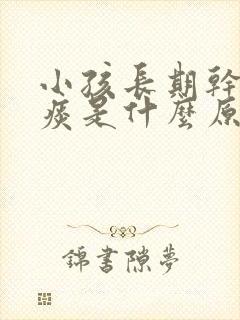 小孩長期幹
痰是什麼原
錦書隙夢